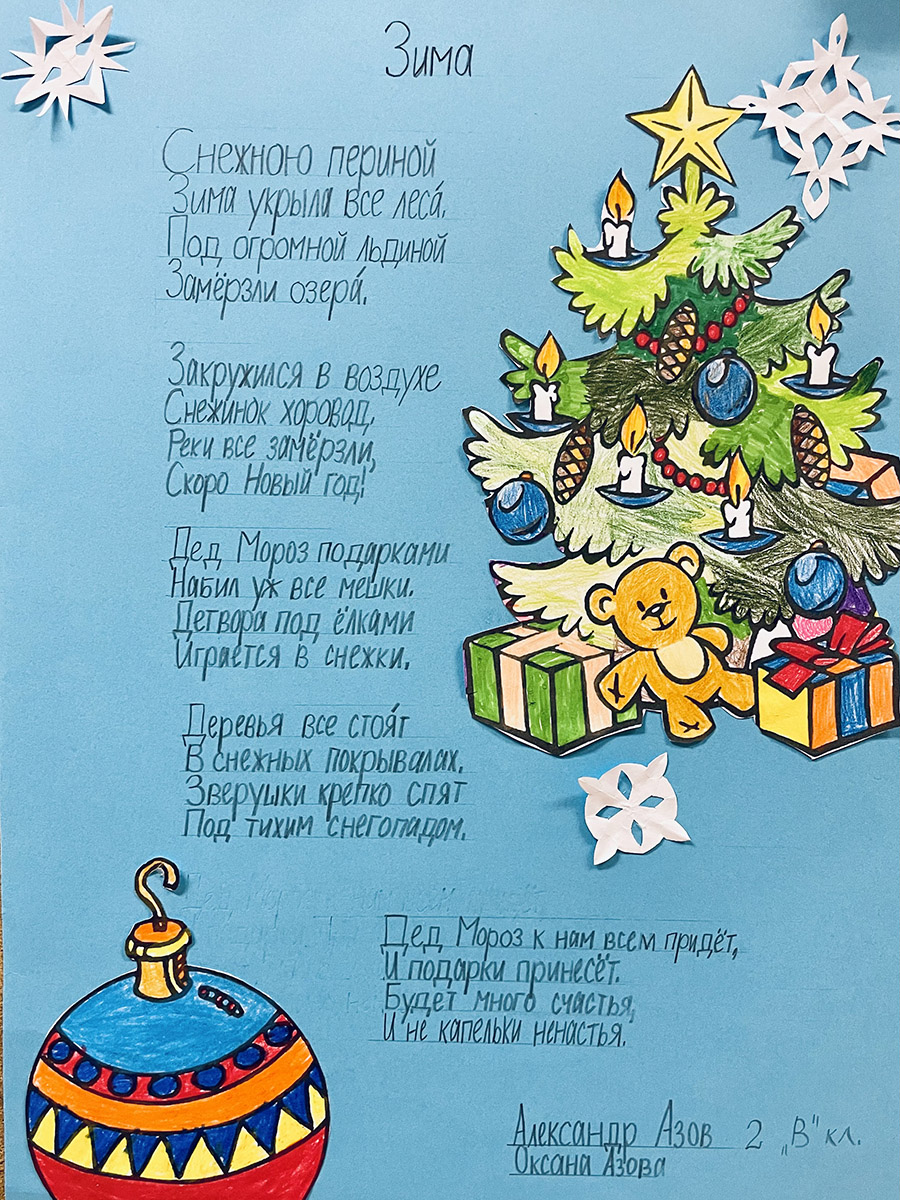 Зима
Снежною периной
Зима укрыла все леса́.
Под огромной льдиной
Замёрзли озера́.
Закружился в воздухе
Снежинок хоровод,
Реки все замёрзли,
Скоро Новый год!
Дед Мороз подарками
Набил уж все мешки.
Детвора под ёлками
Играется в снежки.
Деревья все стоя́т
В снежных покрывалах.
Зверушки крепко спят
Под тихим снегопадом.
Дед Мороз к нам всем придёт,
И подарки принесёт.
Будет много счастья,
И не капельки ненастья.
Александр Азов 2 „В" кл.
Оксана Азова